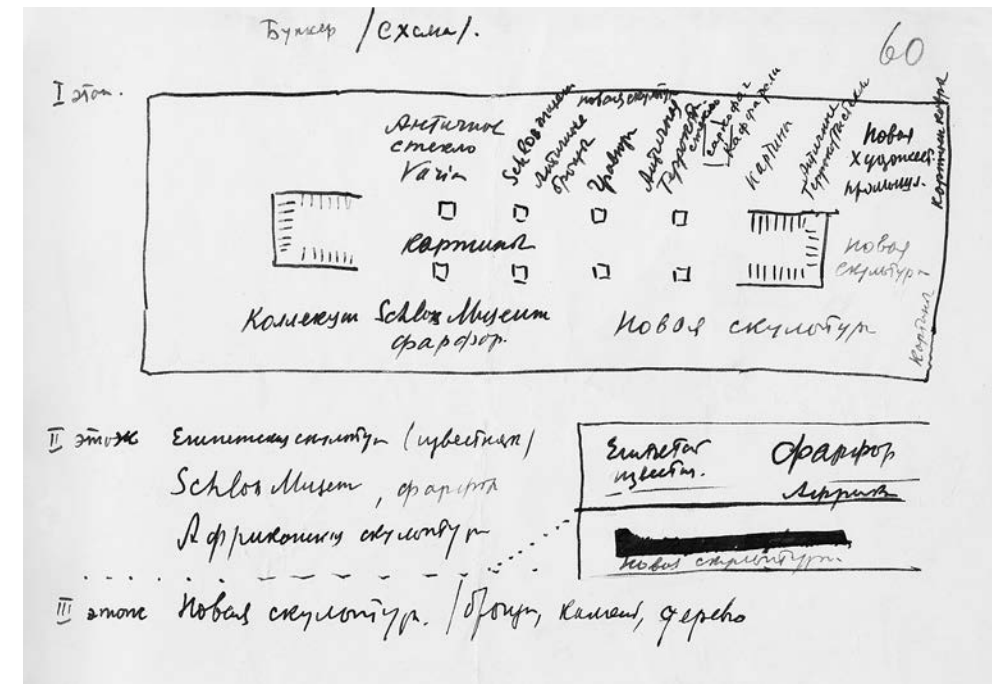 Бункер /Схема/.
60
I этаж.
Античное
стекло
Varia
Schlossmuseum
Античные
бронзы
новая скульптура
Гравюры
Античная
Террокота
стекло
саркофаги
Каффароли
Картины
Античные
Новая
Художест.
промышл.
Картины
Картины
новая
скульптура
Коллекция Schloss Museum
фарфор.
Новая скульптура
Картины
II этаж Египетская скульптура (известняк)
Schloss Museum, фарфор
Африканская скульптура
Египетская
известняк.
фарфор
Африка
новая скульптура
III этаж Новая скульптура. /бронза, камень, дерево